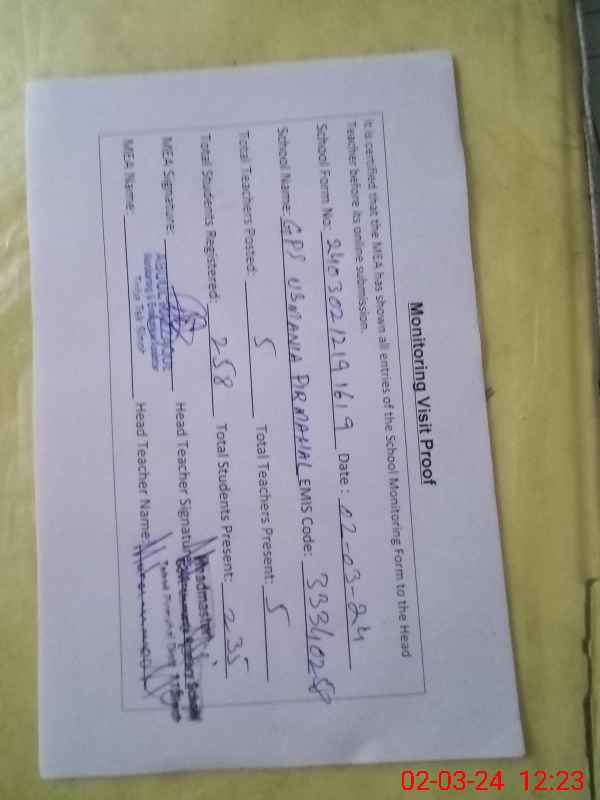 Monitoring Visit Proof
It is certified that the MEA has shown all entries of the School Monitoring Form to the Head
Teacher before its online submission.
School Form No: 24030212191619 Date: 02-03-24
School Name: GPS USMANIA PIRMAHAL EMIS Code: 33340258
Total Teachers Posted: 5 Total Teachers Present: 5
Total Students Registered: 258 Total Students Present: 235
MEA Signature: Head Teacher Signature:
Headmaster
MEA Name: Head Teacher Name:
02-03-24 12:23